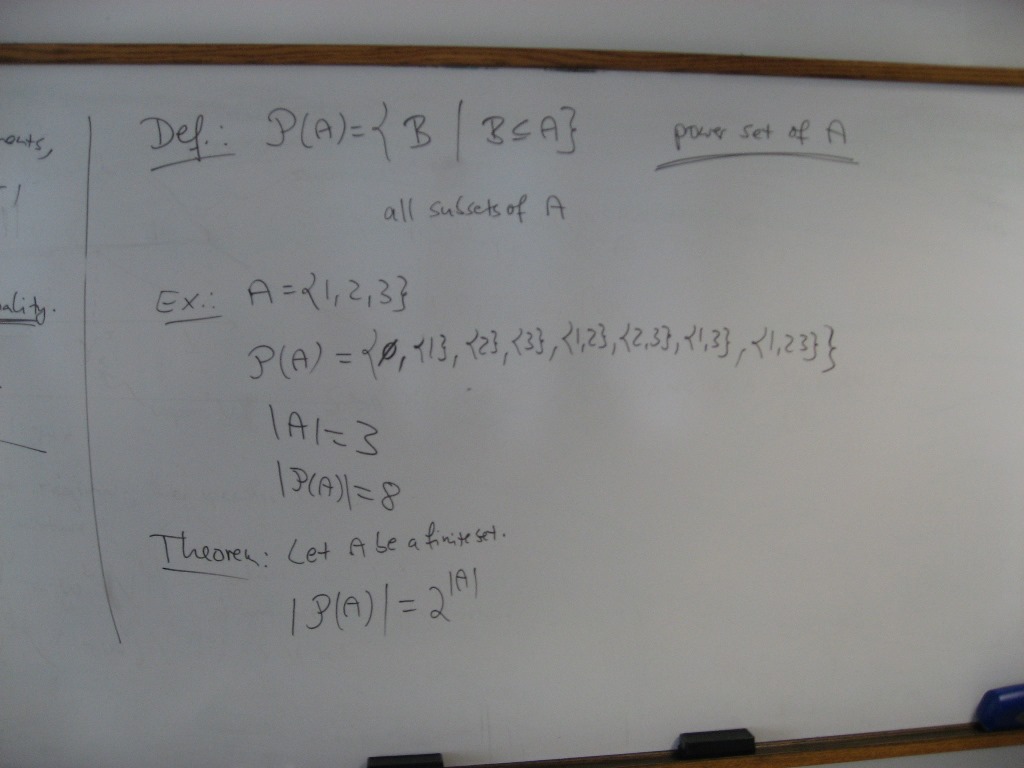 Def.: P(A)={ B | B⊆A} power set of A
all subsets of A
ality.
Ex.: A={1,2,3}
P(A) = {∅, {1}, {2}, {3}, {1,2}, {2,3}, {1,3}, {1,23}}
|A|=3
|P(A)|=8
Theorem: Let A be a finite set.
|P(A)| = 2^|A|